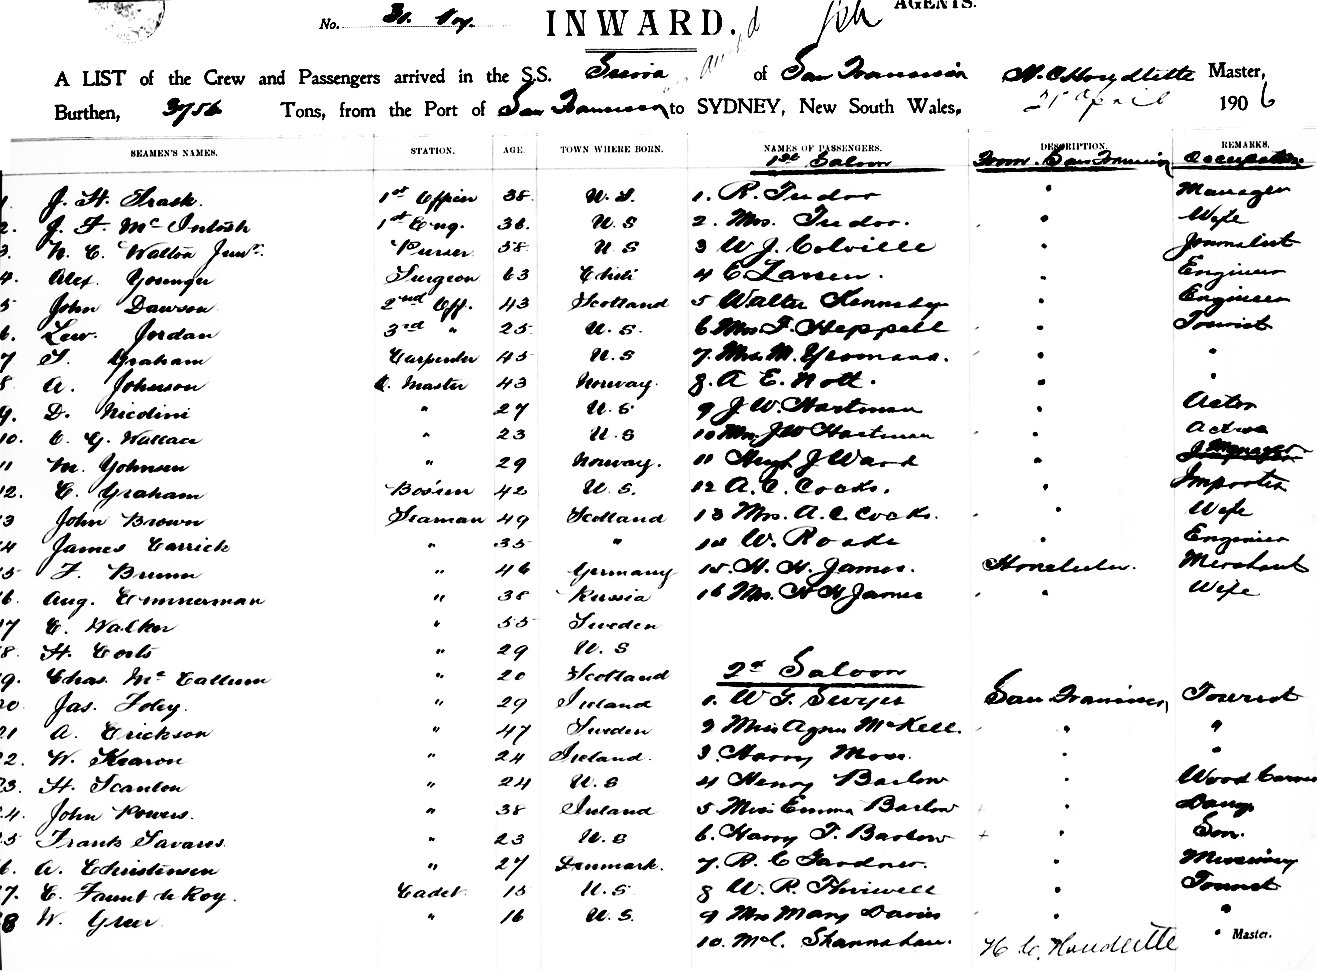 AGENTS.
No. 31. Voy.
INWARD.
A LIST of the Crew and Passengers arrived in the S.S. Sierra of San Francisco H. C. Houdlette Master,
Burthen, 3756 Tons, from the Port of San Francisco to SYDNEY, New South Wales, April 1906
SEAMEN'S NAMES. STATION. AGE. TOWN WHERE BORN. NAMES OF PASSENGERS. DESCRIPTION. REMARKS.
1st Saloon From San Francisco Occupation
1. J. H. Trask. 1st Officer 38 U.S. 1. R. Tudor " Manager
2. J. F. McIntosh 1st Eng. 36. U S 2. Mrs. Tudor. " Wife
3. N. C. Walton Junr. Purser 58 U S 3 W J. Colville " Journalist
4. Alex. Younger Surgeon 63 Chili 4 C Larsen. " Engineer
5 John Dawson 2nd Off. 43 Scotland 5 Walter Kennedy " Engineer
6. Lew. Jordan 3rd " 25 U.S. 6 Mrs F. Heppell " Tourist
7 T. Graham Carpenter 45 U.S 7. Mrs. M. Yeomans. " "
8 A. Johnson Q. Master 43 Norway. 8. A E. Nott. " "
9. D. Nicolini " 27 U.S 9 J W. Hartman " Actor
10. C. G. Wallace " 23 U S 10 Mrs J W Hartman " Actress
11 M. Johnsen " 29 Norway. 11 Hugh J Ward " J Manager
12. C. Graham Bos'un 42 U.S. 12 A. C. Cocks. " Importer
13 John Brown Seaman 49 Scotland 13 Mrs. A. C. Cocks. " Wife
14 James Carrick " 35 " 14 W. " Engineer
15 F. Brunn " 46 Germany 15. H. H. James. Honolulu. Merchant
16 Aug. Zimmerman " 38 Russia 16 Mrs. H H James " Wife
17 C. Walker " 55 Sweden
18. H. " 29 U. S
19. Chas. McCallum " 20 Scotland 2nd Saloon
20 Jas. Foley. " 29 Ireland 1. W G. San Francisco, Tourist
21 A. Erickson " 47 Sweden 2 Miss Agnes McKell. " "
22. W. Kearon " 24 Ireland. 3. Harry Moss. " "
23. H. Scanlon " 24 U.S 4 Henry Barlow " Wood Carver
24. John Powers. " 38 Ireland 5 Miss Emma Barlow "
25 Frank Tavares. " 23 U S 6. Harry T. Barlow " Son.
26. A. Christensen " 27 Denmark. 7. R. C Gardner. " Missionary
27. C. Faunt de Roy. Cadet. 15 U.S 8 W. R. Thirwell " Tourist
28 W. Greer " 16 U.S. 9 Mrs Mary Davies " "
10. Shannahan. H. C. Houdlette " Master.